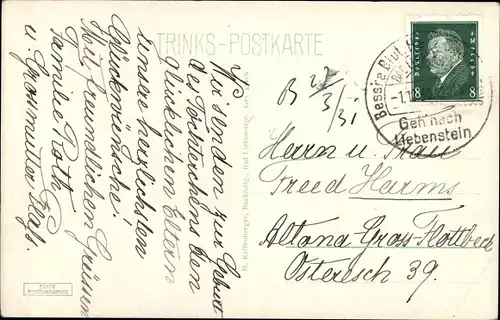 TRINKS-POSTKARTE
Wir senden zur Geburt
des Töchterchens den
glücklichen Eltern
unsere herzlichsten
Glückwünsche.
Mit freundlichen Grüssen
Familie Roth
u. Grossmutter
Herrn u. Frau
Freed Harms
Altona Gross Flottbek
Osteresch 39.
Deutsches Reich
8 8
Bess're Blut
Geh' nach
Liebenstein
ECHTE
PHOTOGRAPHIE